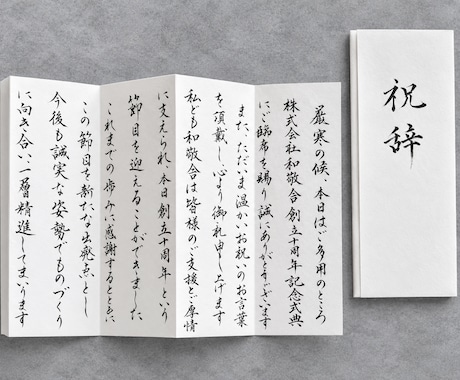 厳寒の候、本日はご多用のところ
株式会社和敬合創立十周年記念式典
にご臨席を賜り誠にありがとうございます
また、ただいま温かいお祝いのお言葉
を頂戴し心より御礼申し上げます
私ども和敬合は皆様のご支援とご厚情
に支えられ、本日創立十周年という
節目を迎えることができました
これまでの歩みに感謝するとともに
この節目を新たな出発点とし
今後も誠実な姿勢でものづくり
に向き合い、一層精進してまいります
祝辞